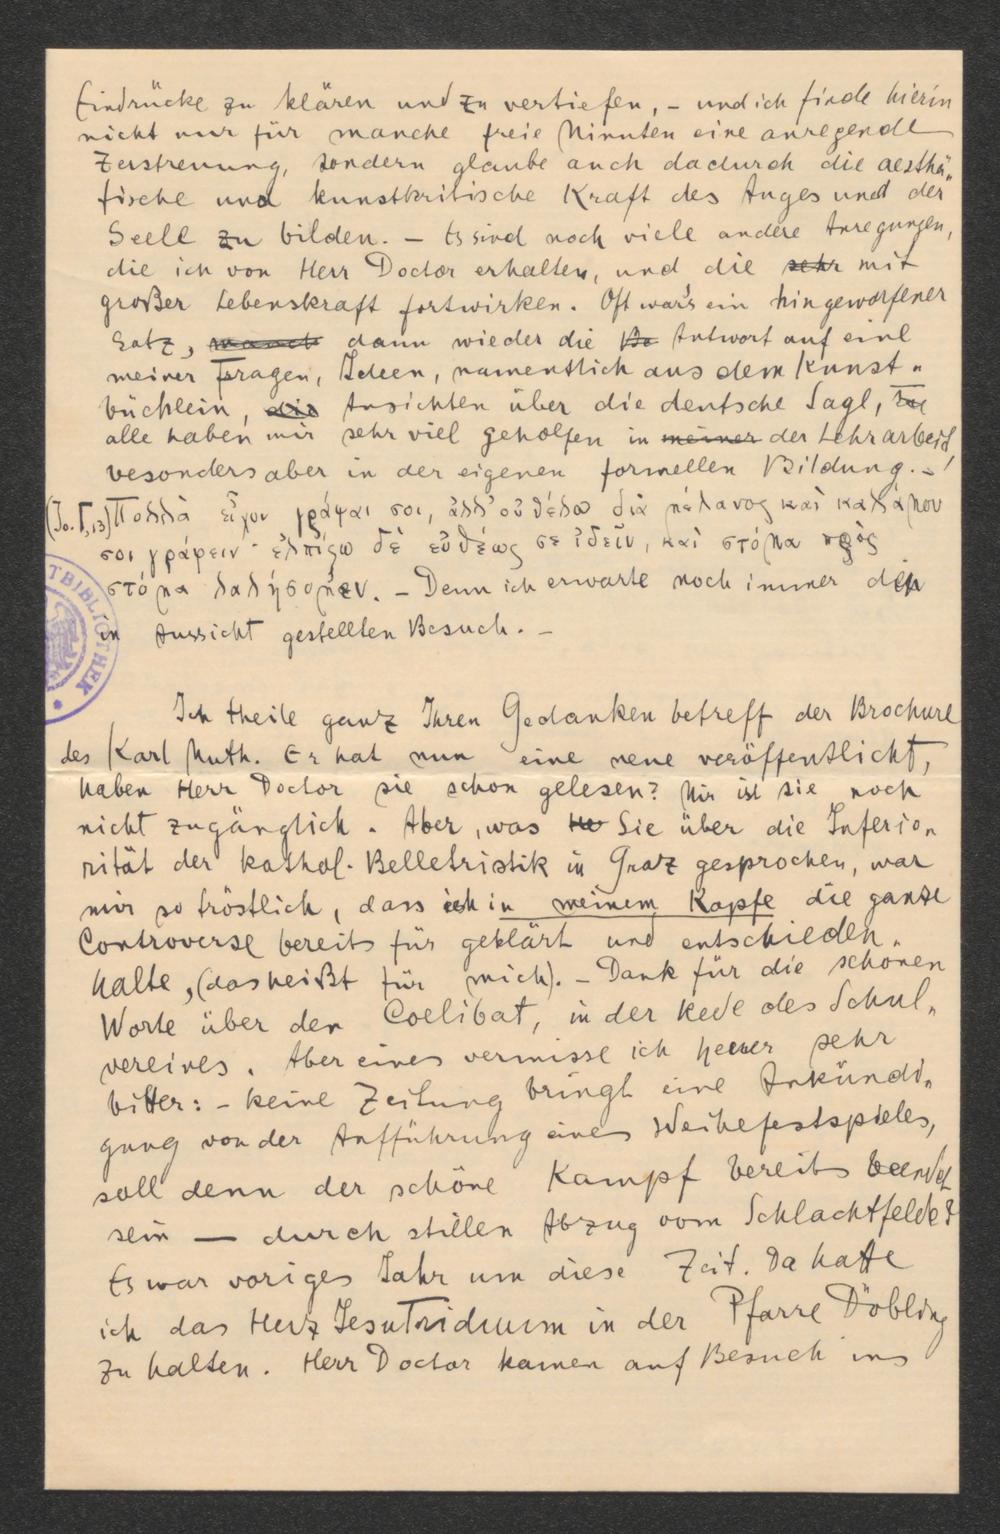 Eindrücke zu klären und zu vertiefen, - und ich finde hierin
nicht nur für manche freie Minuten eine anregende
Zerstreuung, sondern glaube auch dadurch die aesthä„
tische und kunstkritische Kraft des Auges und der
Seele zu bilden. - Es sind noch viele andere Anregungen,
die ich von Herr Doctor erhalten, und die sehr mit
großer Lebenskraft fortwirken. Oft war's ein hingeworfener
Satz, manch dann wieder die Be Antwort auf eine
meiner Fragen, Ideen, namentlich aus dem Kunst„
büchlein, die Ansichten über die deutsche Sage,
alle haben mir sehr viel geholfen in meiner der Lehrarbeit
besonders aber in der eigenen formellen Bildung. - !
(Jo. Γ, 13) Πολλὰ εἶχον γράψαι σοι, ἀλλ' οὐ θέλω διὰ μέλανος καὶ καλάμου
σοι γράφειν· ἐλπίζω δὲ εὐθέως σε ἰδεῖν, καὶ στόμα πρὸς
στόμα λαλήσομεν. - Denn ich erwarte noch immer den
in Aussicht gestellten Besuch. -
TBIBLIOTHEK
Ich theile ganz Ihren Gedanken betreff der Brochure
des Karl Muth. Er hat nun eine neue veröffentlicht,
haben Herr Doctor sie schon gelesen? Mir ist sie noch
nicht zugänglich. Aber, was He Sie über die Inferio„
rität der kathol. Belletristik in Graz gesprochen, war
mir so tröstlich, dass ich in meinem Kopfe die ganze
Controverse bereits für geklärt und entschieden
halte, (das heißt für mich). - Dank für die schönen
Worte über den Coelibat, in der Rede des Schul„
vereines. Aber eines vermisse ich heuer sehr
bitter: - keine Zeitung bringt eine Ankündi„
gung von der Aufführung eines Weihefestspieles,
soll denn der schöne Kampf bereits beendet
sein — durch stillen Abzug vom Schlachtfelde?
Es war voriges Jahr um diese Zeit. Da hatte
ich das Herz Jesu Triduum in der Pfarre Döbling
zu halten. Herr Doctor kamen auf Besuch ins